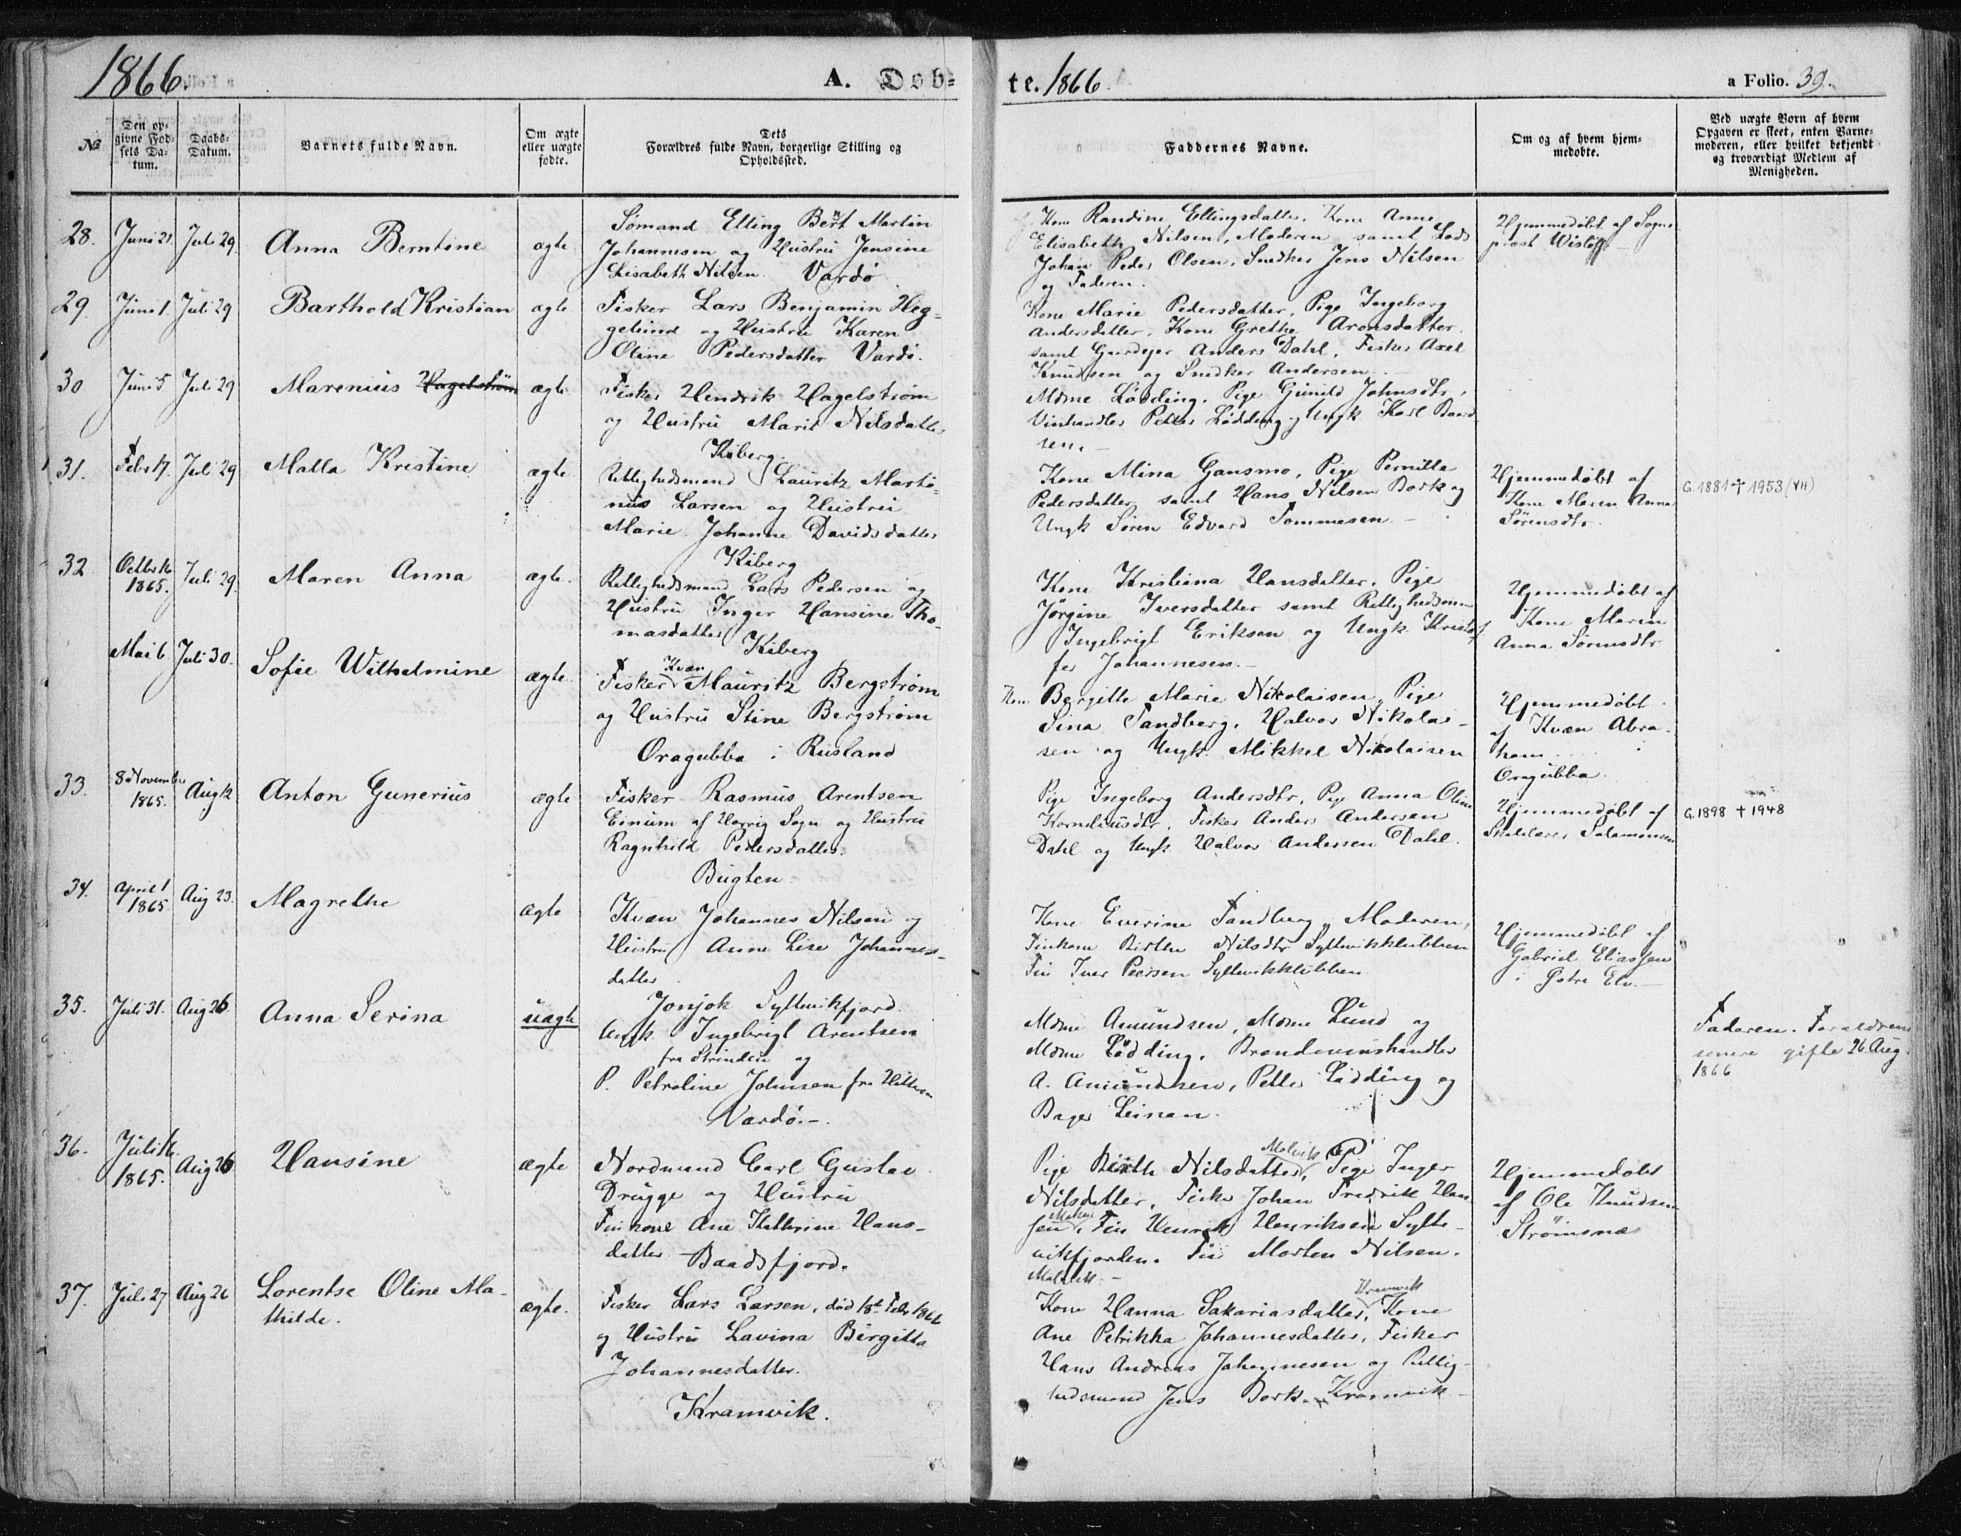 1866.
A. Døb-
te. 1866.
a Folio. 39.
No
Den op-
givne Fød-
sels Da-
tum.
Daabs-
Datum.
Barnets fulde Navn.
Om ægte
eller uægte
fødte.
Dets
Forældres fulde Navn, borgerlige Stilling og
Opholdssted.
Faddernes Navne.
Om og af hvem hjem-
medøbte.
Ved uægte Børn af hvem
Opgaven er skeet, enten Barne-
moderen, eller hvilket bekjendt
og troværdigt Medlem af
Menigheden.
28. Juni 21. Juli 29. Anna Berntine ægte
Sømand Elling Bernt Martin
Johannesen og Hustru Jensine
Lisabeth Nilsen. Vardø
Kone Randine Ellingsdatter, Kone Anne
Elisabeth Nilsen, Moderen samt Lods
Johan Peder Olsen, Snedker Jens Nilsen
og Faderen.
Hjemmedøbt af Sogne-
prest Wisløff
29. Juni 1. Juli 29 Barthold Kristian ægte
Fisker Lars Benjamin Heg-
gelund og Hustru Karen
Oline Pedersdatter Vardø.
Kone Marie Pedersdatter, Pige Ingeborg
Andersdatter, Kone Grethe Aronsdatter
samt Gaardejer Anders Dahl, Fisker Axel
Knudsen og Snedker Andersen.
30 Juni 5 Juli 29 Marenius Hagelstrøm ægte
Fisker Hendrik Hagelstrøm
og Hustru Marie Nilsdatter
Kiberg.
Mdme Lødding, Pige Gunild Johnsdtr,
Vinhandler Petter Lødding og Ungk. Karl Baard
sen.
31. Febr 17. Juli 29 Malla Kristine ægte
Rettighedsmand Lauritz Marti-
nus Larsen og Hustru
Marie Johanne Davidsdatter
Kiberg
Kone Mina Gansmo, Pige Pernille
Pedersdatter samt Hans Nilsen Bork og
Ungk Søren Edvard Tommesen
Hjemmedøbt af
Kone Maren Anna
Sørensdtr.
G. 1881 † 1953 (VII)
32 Octbr 16 1865. Juli 29. Maren Anna ægte.
Rettighedsmand Lars Pedersen og
Hustru Inger Hansine Tho-
masdatter Kiberg
Kone Kristiina Hansdatter, Pige
Jørgine Iversdatter samt Rettighedsmn
Ingebrigt Eriksen og Ungk Kristof
fer Johannesen.
Hjemmedøbt af
Kone Maren
Anna Sørensdtr
Mai 6. Juli 30. Sofie Wilhelmine ægte.
Kvæn
Fisker Mauritz Bergstrøm
og Hustru Stine Bergstrøm
Oragubba i Rusland
Kone Bergitte Marie Nikolaisen, Pige
Sina Sandberg, Halvor Nikolai-
sen og Ungk. Mikkel Nikolaisen
Hjemmedøbt
af Kvæn Abra-
ham
Oragubba.
33. 8 November 1865. Aug 12 Anton Gunerius ægte
Fisker Rasmus Arentsen
Einum af Sogn og Hustru
Ragnhild Pedersdatter.
Bugten.
Pige Ingeborg Andersdtr, Pige Anna Oline
Korneliusdtr, Fisker Anders Andersen
Dahl og Ungk. Halvor Andersen Dahl.
Hjemmedøbt af
Skolelærer Salamonsen
G. 1898 † 1948
34. April 1 1865. Aug 23. Magrethe ægte
Kvæn Johannes Nilsen og
Hustru Anne Lise Johannes-
datter
Jonjok Syltevikfjord.
Kone Everine Sandberg, Moderen,
Finkone Birthe Nilsdtr Syltevikklubben
Fin Iver Peersen Syltevikklubben
Hjemmedøbt af
Gabriel Eliassen
i Østre Elv.
35. Juli 31. Aug 26 Anna Serina uægte
Ungk Ingebrigt Arentsen
fra Strinden og
P. Petroline Johnsen fra Hitteren
Vardø.
Mdme Amundsen, Mdme Lund og
Mdme Lødding, Brændevinshandler
A. Amundsen, Petter Lødding og
Bager Leinan.
Faderen. Forældrene
senere gifte 26 Aug.
1866
36. Juli 16. 1865. Aug 26 Hansine ægte
Nordmand Carl Gustav
Drugge og Hustru
Finkone Ane Kathrine Hans-
datter Baadsfjord.
Pige Birthe Nilsdatter, Makvik Pige Inger
Nilsdatter, Fisker Johan Fredrik Han
sen, Makvik Fin Henrik Henriksen Sylte-
vikfjorden. Fin Morten Nilsen.
Makvik.
Hjemmedøbt
af Ole Knudsen
Strømsnæs
37. Juli 27 Aug 26 Lorentse Oline Ma-
thilde. ægte.
Fisker Lars Larsen, død 18de Febr 1866
og Hustru Lavina Birgitta
Johannesdatter.
Kramvik.
Kone Hanna Sakariasdatter, Kramvik Kone
Ane Petrikka Johannesdatter, Fisker
Hans Andreas Johannesen og Rettig-
hedsmand Jens Bork. Kramvik